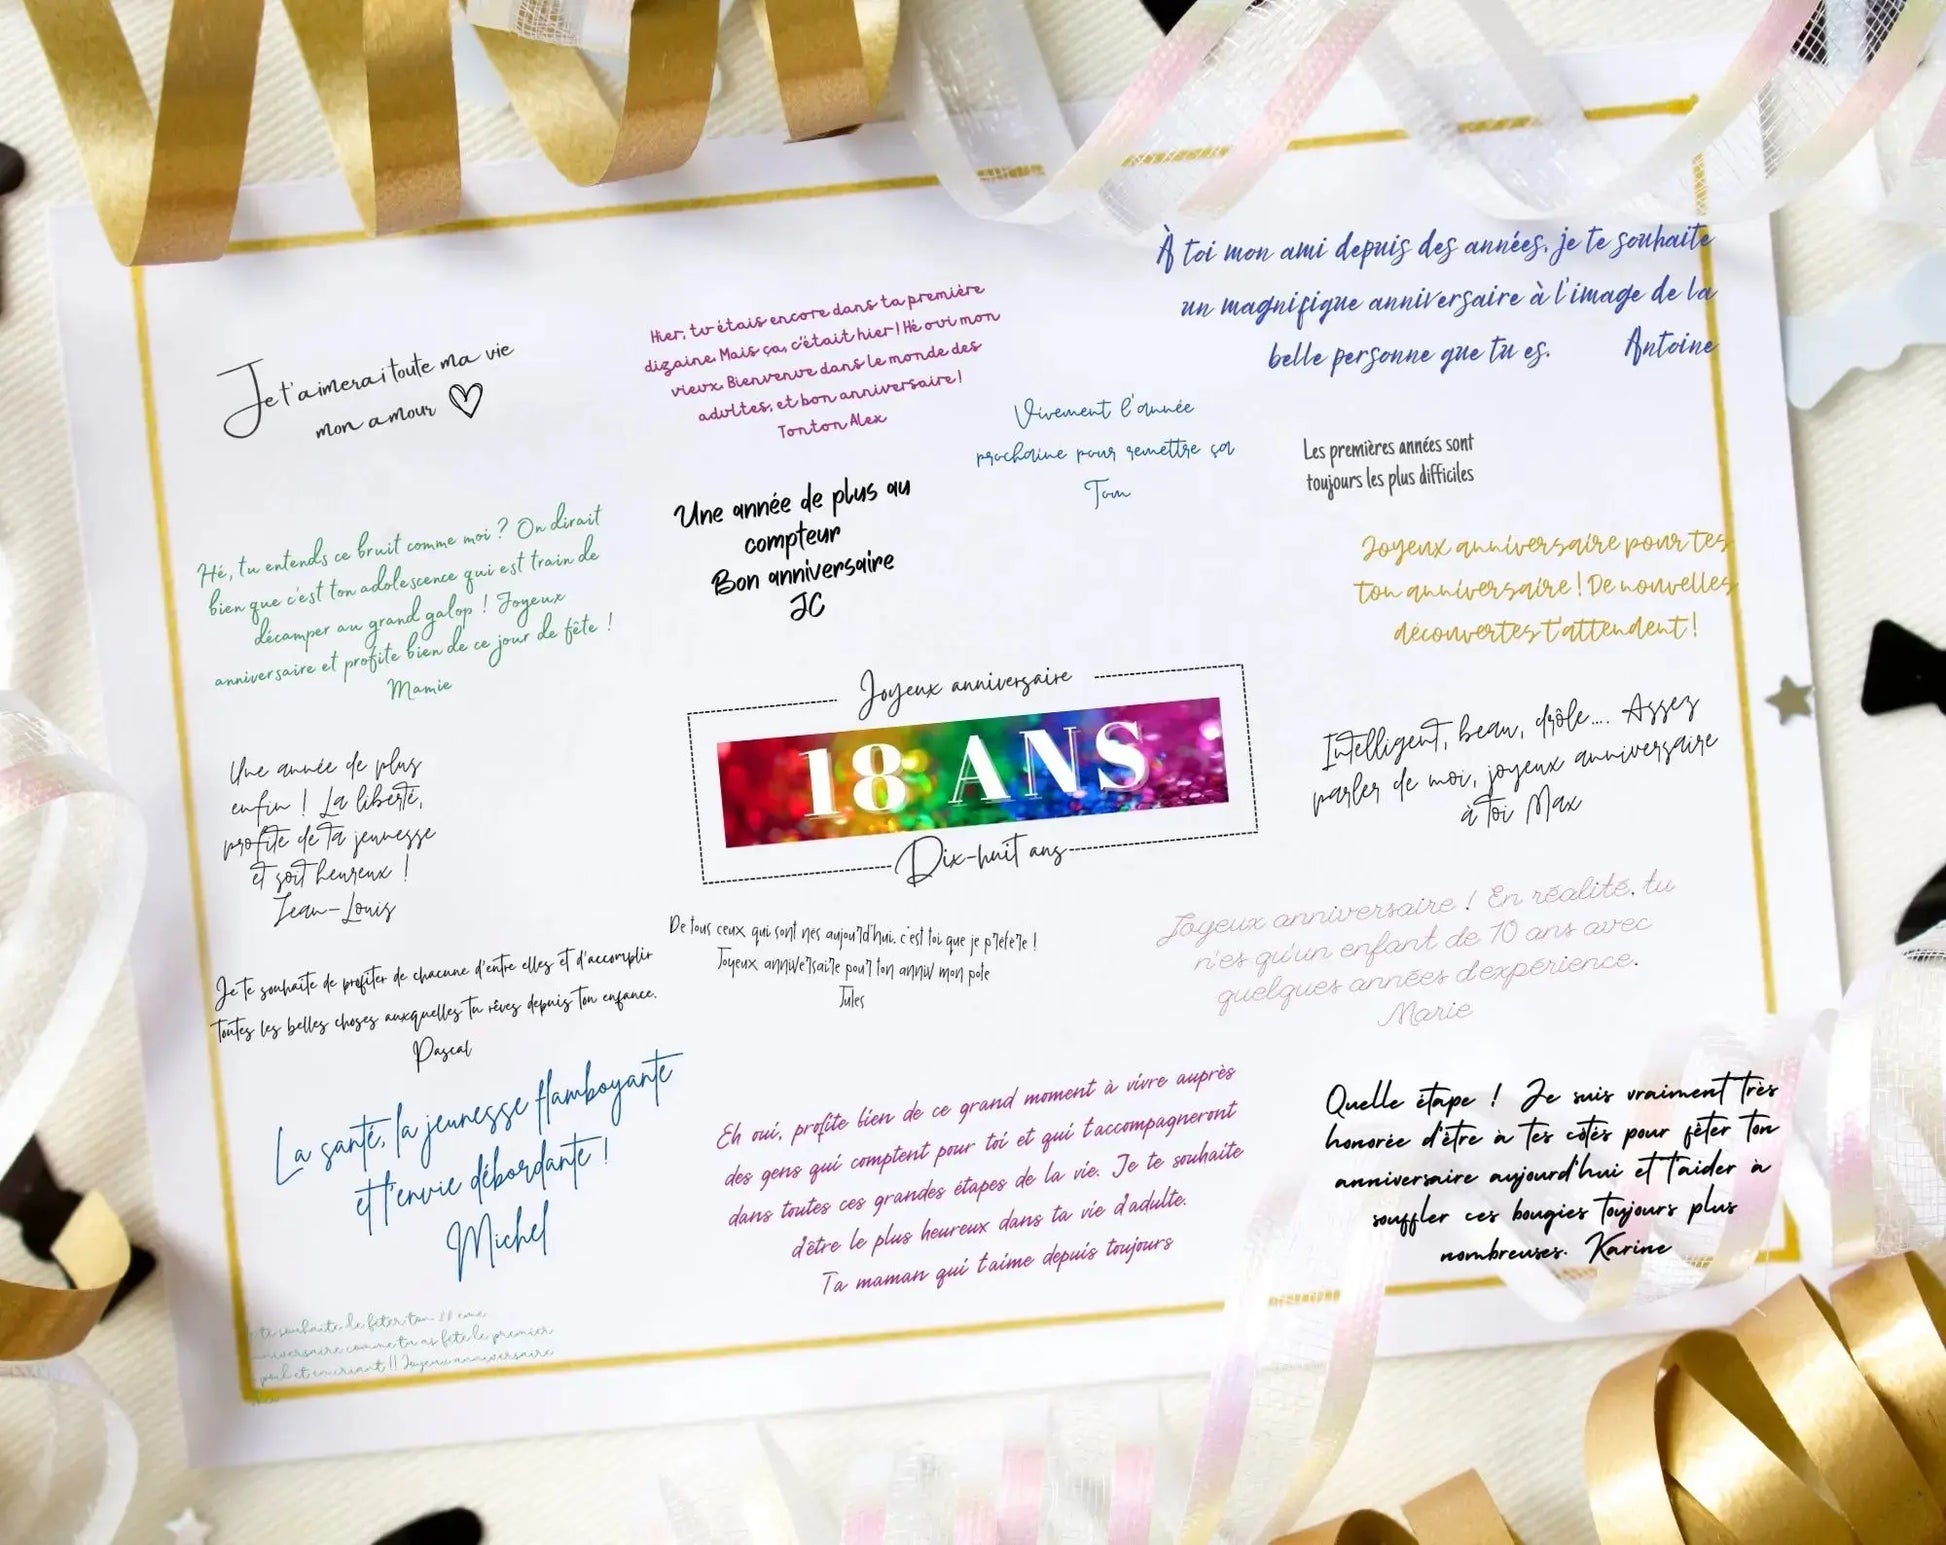 Je t'aimerai toute ma vie
mon amour
Hier, tu étais encore dans ta première
dizaine. Mais ça, c'était hier ! Hé oui mon
vieux. Bienvenue dans le monde des
adultes, et bon anniversaire !
Tonton Alex
À toi mon ami depuis des années, je te souhaite
un magnifique anniversaire à l'image de la
belle personne que tu es. Antoine
Vivement l'année
prochaine pour remettre ça
Tom
Les premières années sont
toujours les plus difficiles
Une année de plus au
compteur
Bon anniversaire
JC
Hé, tu entends ce bruit comme moi ? On dirait
bien que c'est ton adolescence qui est train de
décamper au grand galop ! Joyeux
anniversaire et profite bien de ce jour de fête !
Mamie
Joyeux anniversaire pour tes
ton anniversaire ! De nouvelles
découvertes t'attendent !
Joyeux anniversaire
18 ANS
Dix-huit ans
Intelligent, beau, drôle.... Assez
parler de moi, joyeux anniversaire
à toi Max
Une année de plus
enfin ! La liberté,
profite de ta jeunesse
et soit heureux !
Jean-Louis
De tous ceux qui sont nes aujourd'hui, c'est toi que je préfère !
Joyeux anniversaire pour ton anniv mon pote
Jules
Joyeux anniversaire ! En réalité, tu
n'es qu'un enfant de 10 ans avec
quelques années d'expérience.
Marie
Je te souhaite de profiter de chacune d'entre elles et d'accomplir
toutes les belles choses auxquelles tu rêves depuis ton enfance.
Pascal
La santé, la jeunesse flamboyante
et l'envie débordante !
Michel
Eh oui, profite bien de ce grand moment à vivre auprès
des gens qui comptent pour toi et qui t'accompagneront
dans toutes ces grandes étapes de la vie. Je te souhaite
d'être le plus heureux dans ta vie d'adulte.
Ta maman qui t'aime depuis toujours
Quelle étape ! Je suis vraiment très
honorée d'être à tes côtés pour fêter ton
anniversaire aujourd'hui et t'aider à
souffler ces bougies toujours plus
nombreuses. Karine
te souhaite de fêter ton 18 eme
anniversaire comme tu as fêté le premier
poil et en criant !! Joyeux anniversaire